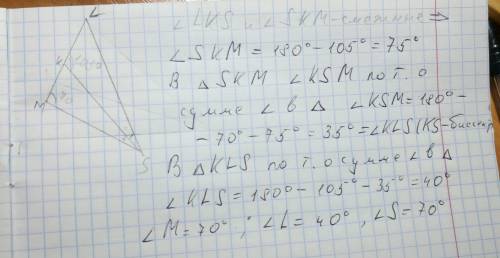 ∠LKS и ∠SKM-смежные ⇒
∠SKM = 180° - 105° = 75°
В △SKM ∠KSM по т. о
сумме ∠ в △ ∠KSM = 180° -
- 70° - 75° = 35° = ∠KLS (KS-биссектр
В △KLS по т. о сумме ∠ в △
∠KLS = 180° - 105° - 35° = 40°
∠M = 70°; ∠L = 40°, ∠S = 70°
L
K
M
70
S